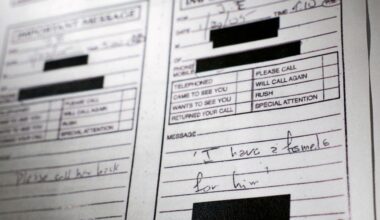 IMPORTANT MESSAGE
PLEASE CALL
WILL CALL AGAIN
RUSH
SPECIAL ATTENTION
Please call her back
J.E
1/20/05 TIME
OF
PHONE
MOBILE
TELEPHONED PLEASE CALL
CAME TO SEE YOU WILL CALL AGAIN
WANTS TO SEE YOU RUSH
RETURNED YOUR CALL SPECIAL ATTENTION
MESSAGE
'I have a female
for him'